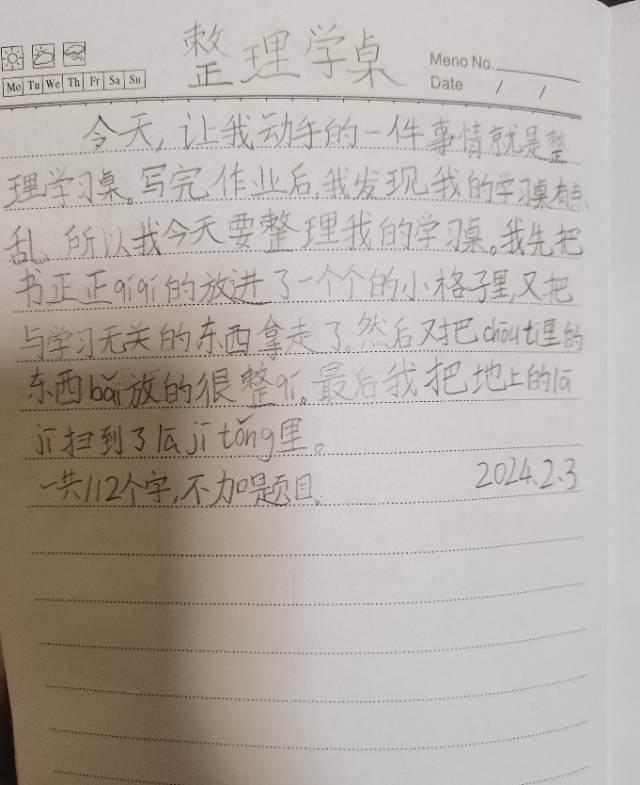 整理学桌
Meno No.
Date / /
Mo Tu We Th Fr Sa Su
今天,让我动手的一件事情就是整
理学习桌。写完作业后,我发现我的学习桌有点
乱、所以我今天要整理我的学习桌。我先把
书正正qíqí的放进了一个个的小格子里,又把
与学习无关的东西拿走了。然后又把chōu tì里的
东西bǎi放的很整qí。最后我把地上的lā
jī扫到了lā jī tǒng里。
一共112个字,不加题目。
2024.2.3